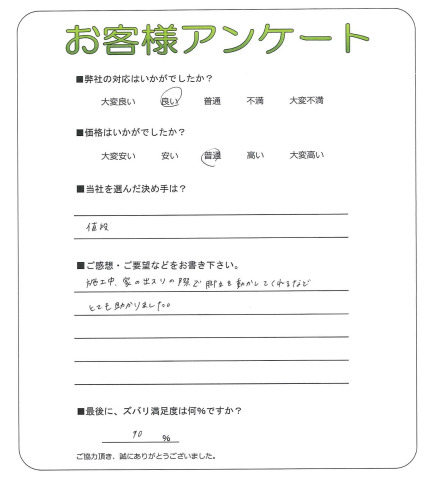 お客様アンケート
■弊社の対応はいかがでしたか？
大変良い　良い　普通　不満　大変不満
■価格はいかがでしたか？
大変安い　安い　普通　高い　大変高い
■当社を選んだ決め手は？
値段
■ご感想・ご要望などをお書き下さい。
施工中、家の出入りの際で脚立を動かしてくれるなど
とても助かりました。
■最後に、ズバリ満足度は何%ですか？
90 %
ご協力頂き、誠にありがとうございました。